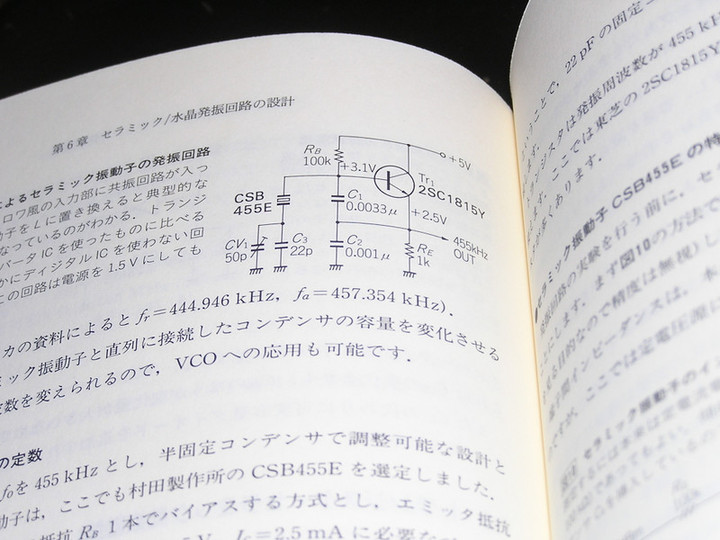 第6章 セラミック/水晶発振回路の設計
によるセラミック振動子の発振回路
ロワ風の入力部に共振回路が入っ
動子をLに置き換えると典型的な
なっているのがわかる.トランジ
バータICを使ったものに比べる
かにディジタルICを使わない回
この回路は電源を1.5Vにしても
RB
100k
+3.1V
+5V
Tr1
2SC1815Y
CSB
455E
C1
0.0033μ
+2.5V
CV1
50p
C3
22p
C2
0.001μ
RE
1k
455kHz
OUT
カの資料によるとfr=444.946 kHz, fa=457.354 kHz).
ミック振動子と直列に接続したコンデンサの容量を変化させる
数を変えられるので,VCOへの応用も可能です.
の定数
f0を455 kHzとし,半固定コンデンサで調整可能な設計と
動子は,ここでも村田製作所のCSB455Eを選定しました.
抵抗RB 1本でバイアスする方式とし,エミッタ抵抗
V, IC=2.5 mAに必要な
うことで,22 pFの固定
トランジスタは発振周波数が455 kH
ます.ここでは東芝の2SC1815Y
が多くあります.
セラミック振動子CSB455Eの特
発振回路の実験を行う前に,セ
にします.まず図10の方法で
目的なので精度は無視)し
インピーダンスは,本
ですが,ここでは定電圧源に